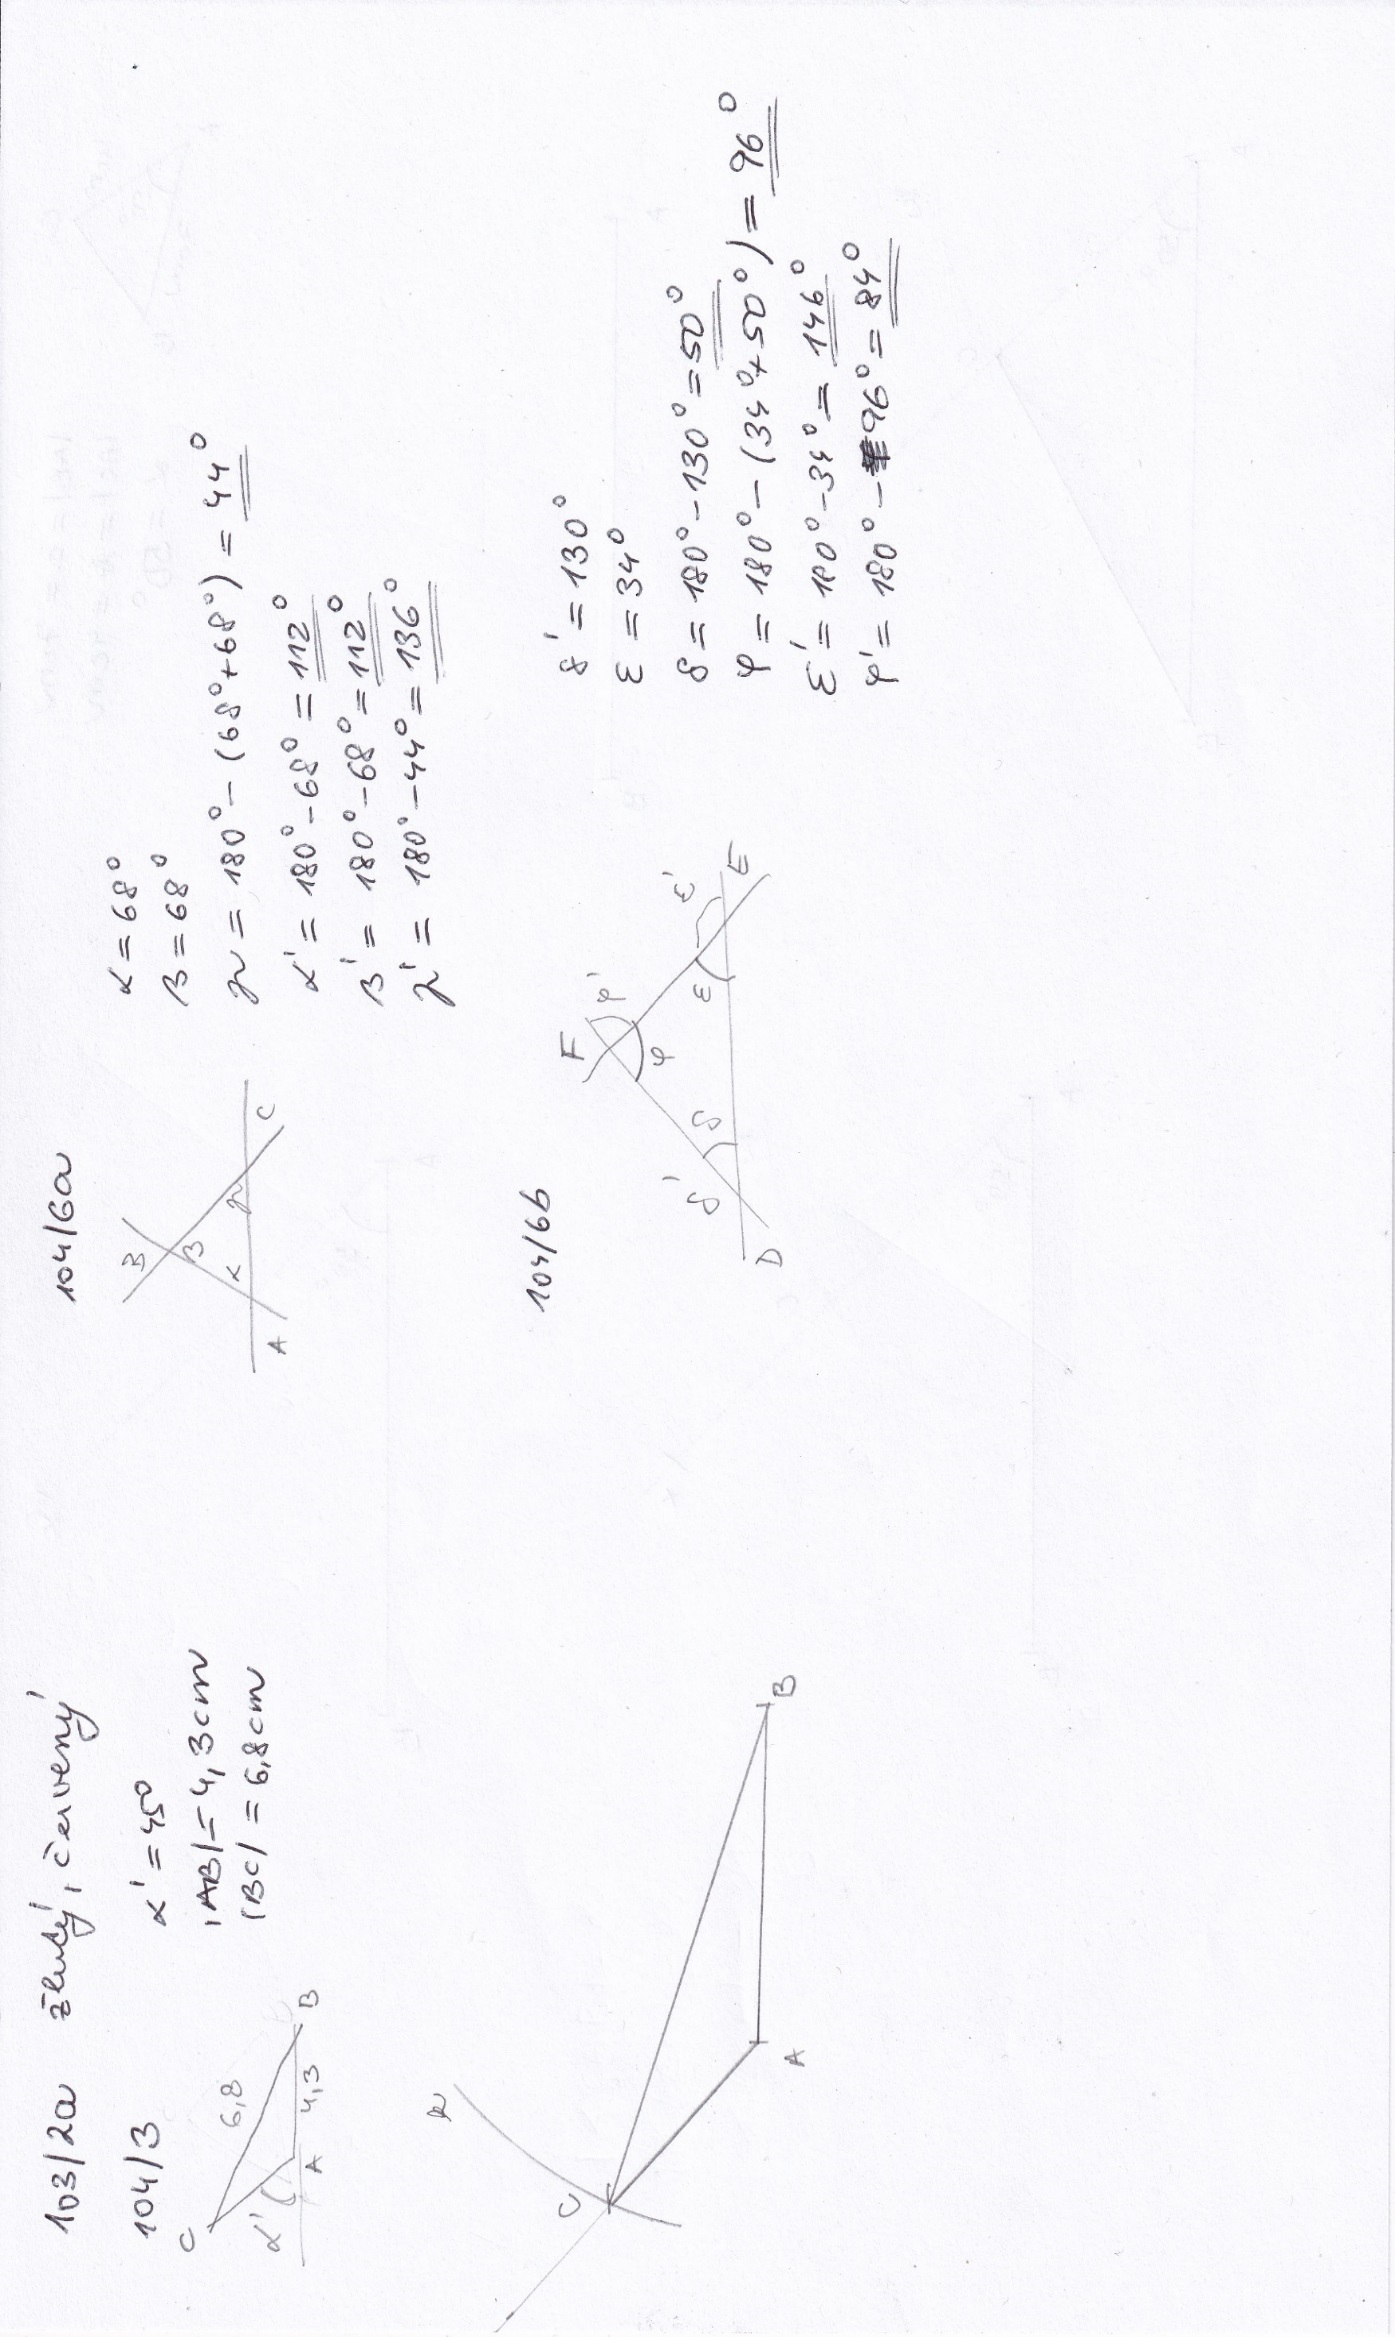 103/2a žlutý, červený
104/3
α' = 45°
|AB| = 4,3 cm
|BC| = 6,8 cm
C
6,8
α'
A
4,3
B
k
C
A
B
104/6a
B
β
α
γ
A
C
α = 68°
β = 68°
γ = 180° - (68° + 68°) = 44°
α' = 180° - 68° = 112°
β' = 180° - 68° = 112°
γ' = 180° - 44° = 136°
104/6b
F
φ'
φ
δ'
δ
ε
ε'
D
E
δ' = 130°
ε = 34°
δ = 180° - 130° = 50°
φ = 180° - (34° + 50°) = 96°
ε' = 180° - 34° = 146°
φ' = 180° - 96° = 84°